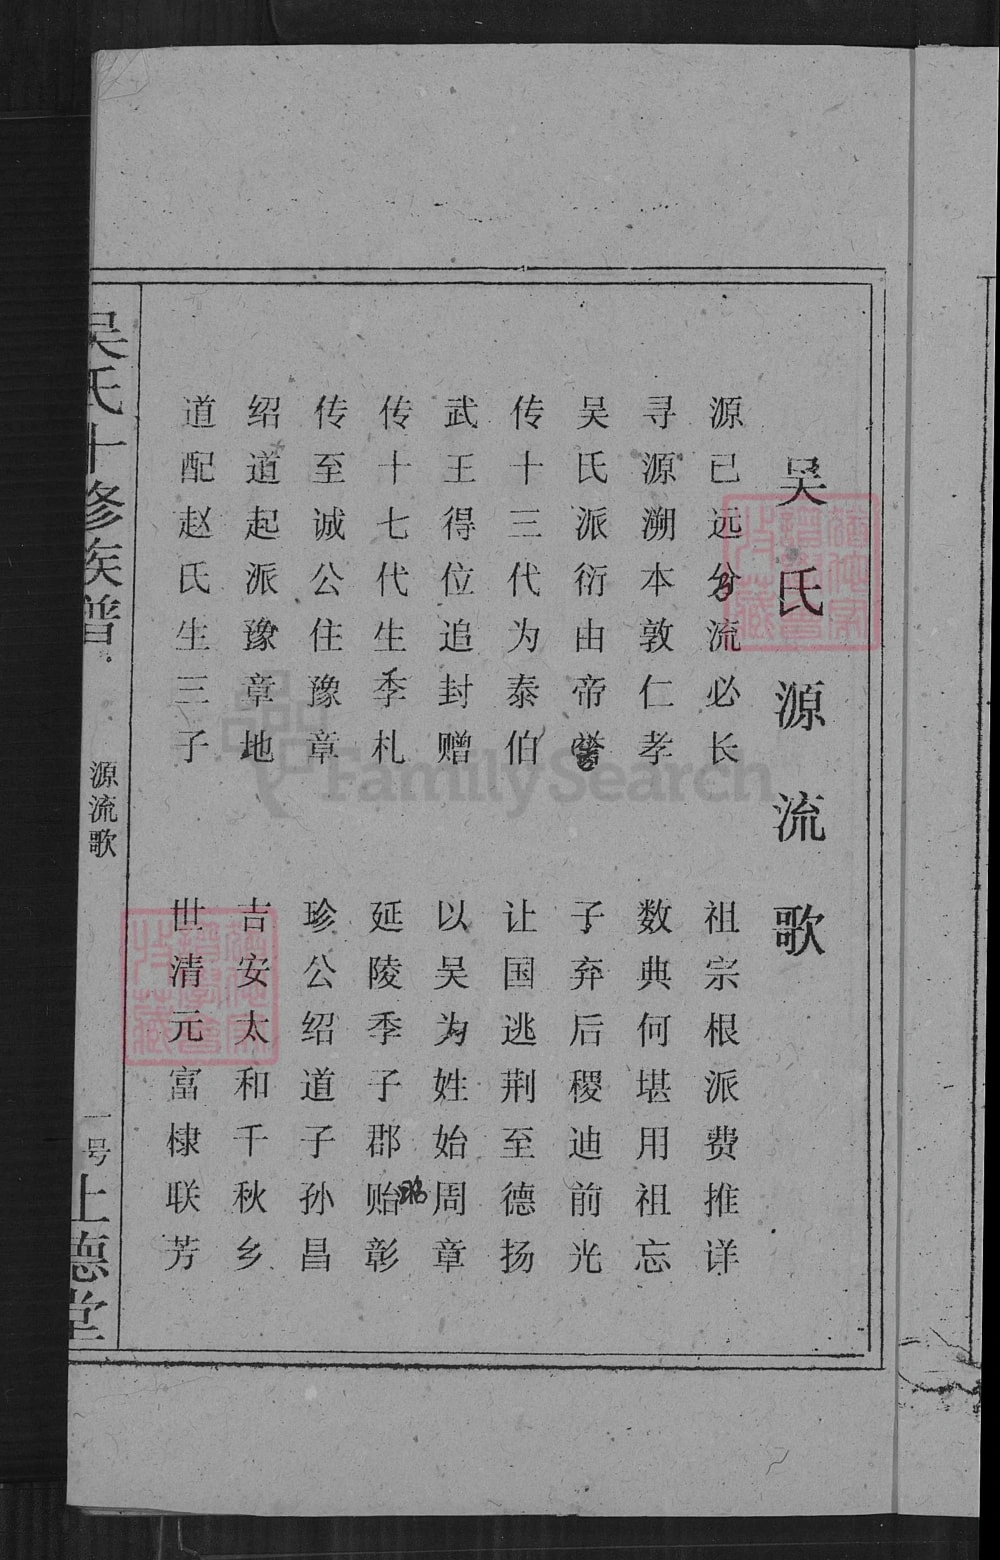 吴氏源流歌
源已远分流必长 祖宗根派费推详
寻源溯本敦仁孝 数典何堪用祖忘
吴氏派衍由帝喾 子弃后稷迪前光
传十三代为泰伯 让国逃荆至德扬
武王得位追封赠 以吴为姓始周章
传十七代生季札 延陵季子郡贻彰
昭
传至诚公住豫章 珍公绍道子孙昌
绍道起派豫章地 吉安太和千秋乡
道配赵氏生三子 世清元富棣联芳
吴氏十修族谱
源流歌
一号
上德堂
FamilySearch